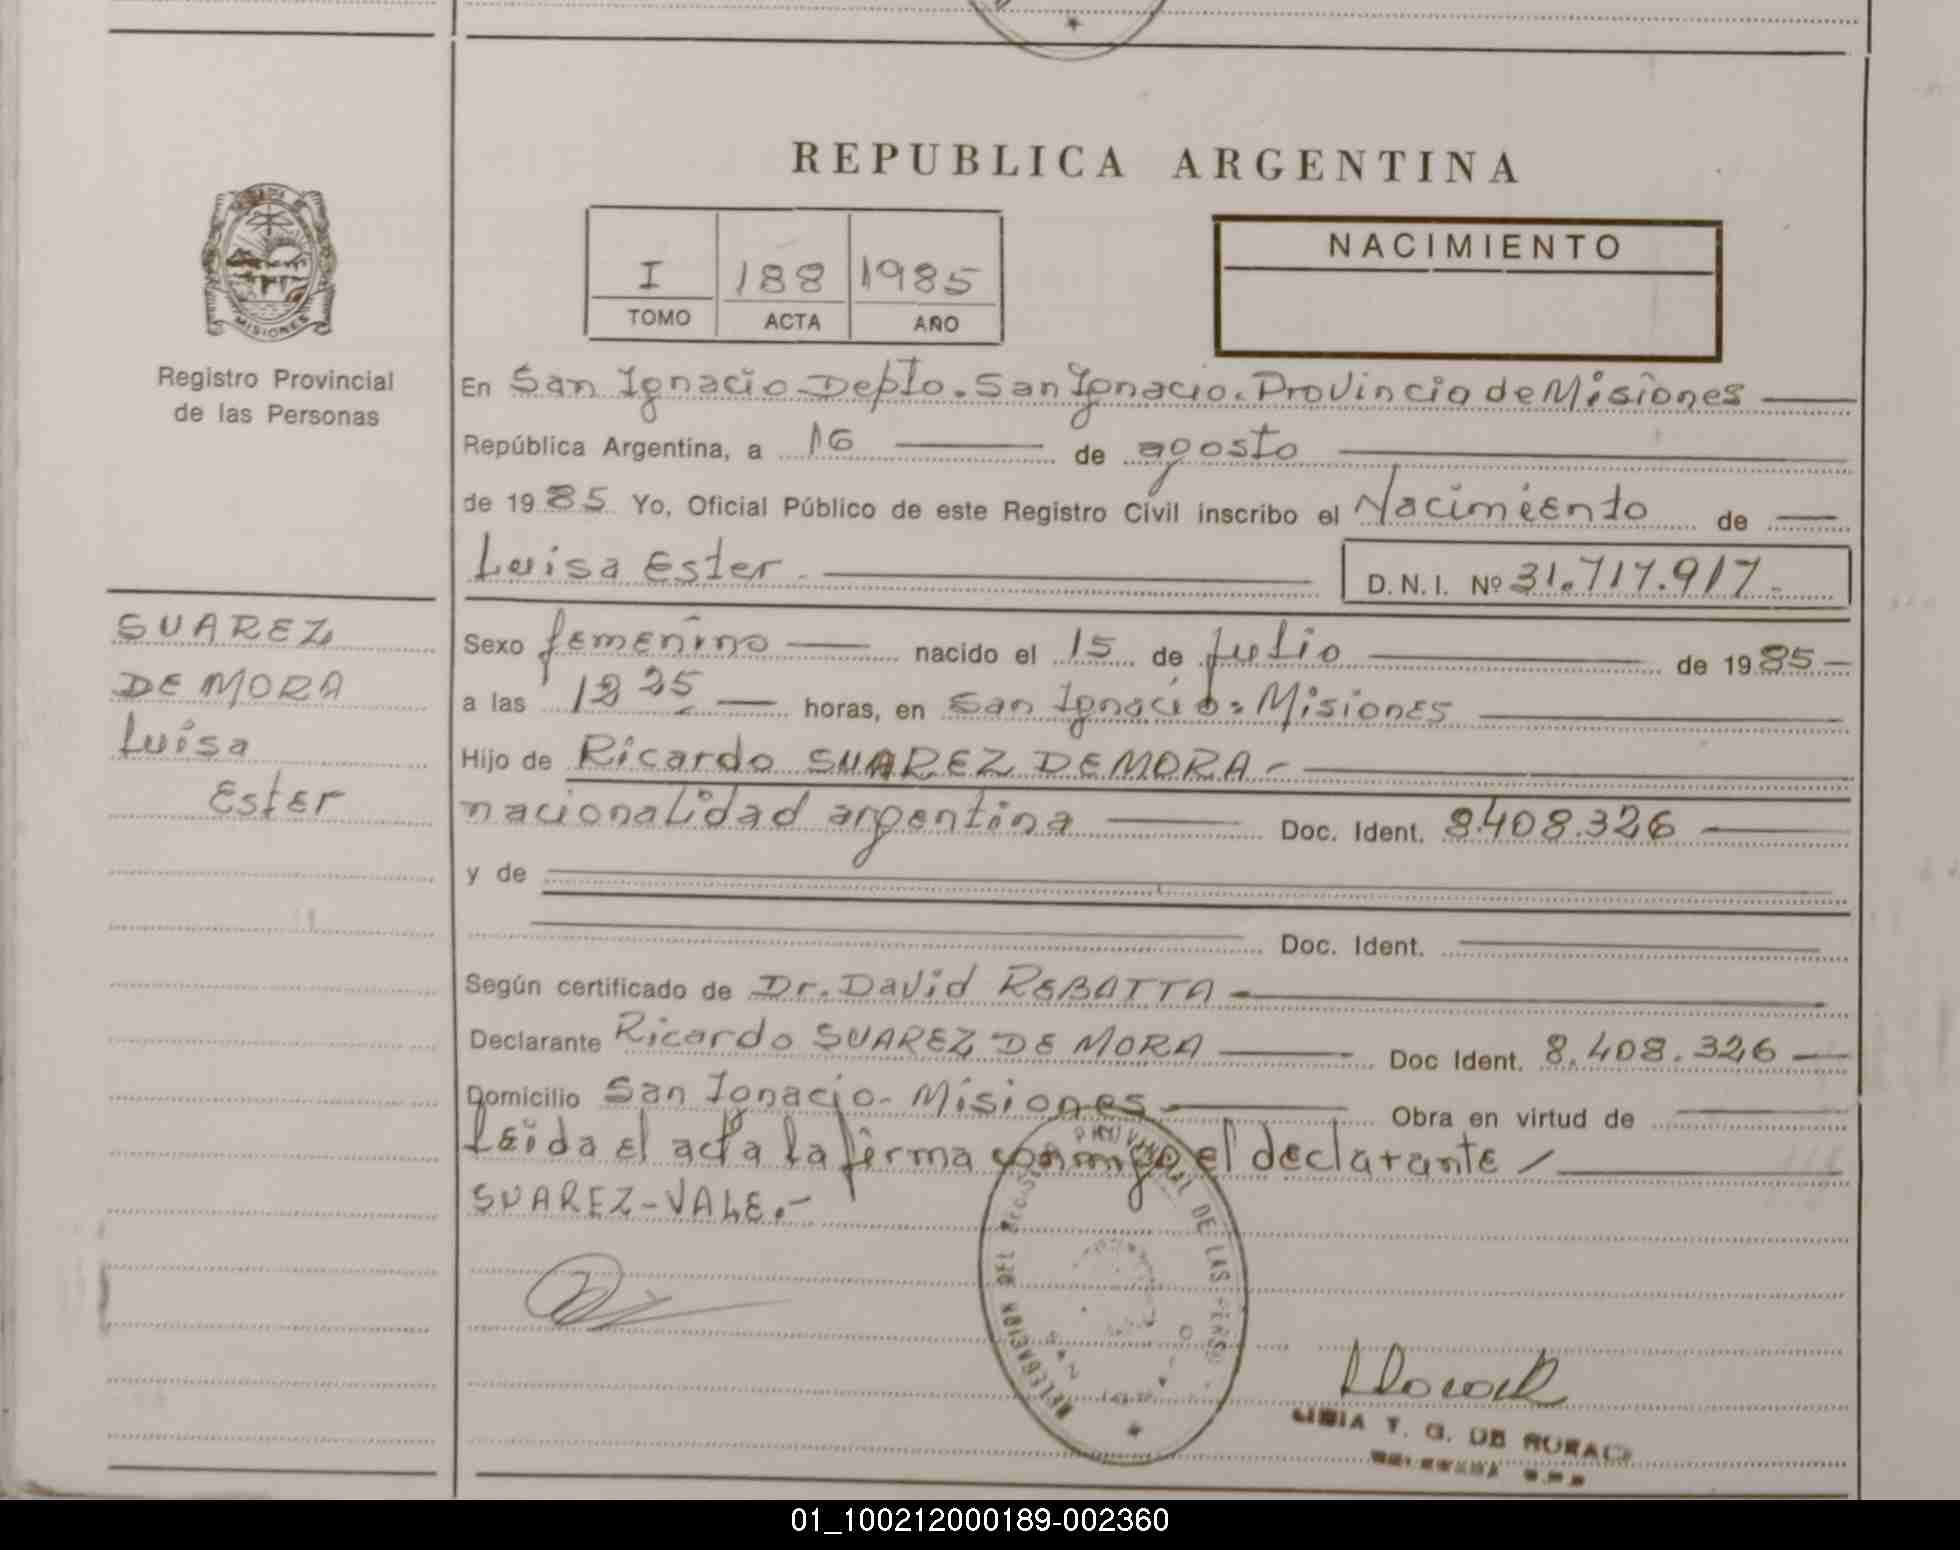 REPUBLICA ARGENTINA
MISIONES
Registro Provincial
de las Personas
I 188 1985
TOMO ACTA AÑO
NACIMIENTO
En San Ignacio Depto. San Ignacio. Provincia de Misiones
República Argentina, a 16 de agosto
de 1985 Yo, Oficial Público de este Registro Civil inscribo el Nacimiento de
Luisa Ester D.N.I. Nº 31.717.917.-
SUAREZ
DE MORA
Luisa
Ester
Sexo femenino nacido el 15 de julio de 1985
a las horas, en San Ignacio. Misiones
Hijo de Ricardo SUAREZ DE MORA -
nacionalidad argentina Doc. Ident. 8.408.326
y de
Doc. Ident.
Según certificado de Dr. David REBATTA
Declarante Ricardo SUAREZ DE MORA Doc Ident. 8.408.326
Domicilio San Ignacio - Misiones Obra en virtud de
Leida el acta la firma conmigo el declarante
SUAREZ-VALE.-
DELEGACION DEL REGISTRO PROVINCIAL DE LAS PERSO
T. G. DE
01_100212000189-002360